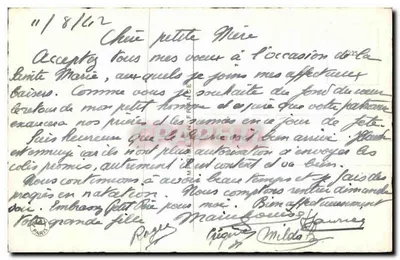 11/8/42
Chère petite Mère
Acceptez tous mes voeux à l'occasion de la
Sainte Marie, auxquels je joins mes affectueux
baisers. Comme vous je souhaite du fond du coeur
de mon petit homme et espère que votre patronne
nos prières en ce jour de fête.
Suis heureuse que bien arrivé
est ennuyé car ils n'ont plus d'envoyer les
colis promis, autrement il est content et va bien.
Nous continuons à avoir beau temps et je fais des
progrès en natation. Nous comptons rentrer dimanche
soir. Embrassez Petit Père pour moi. Bien affectueusement
Votre grande fille
Roger Milda